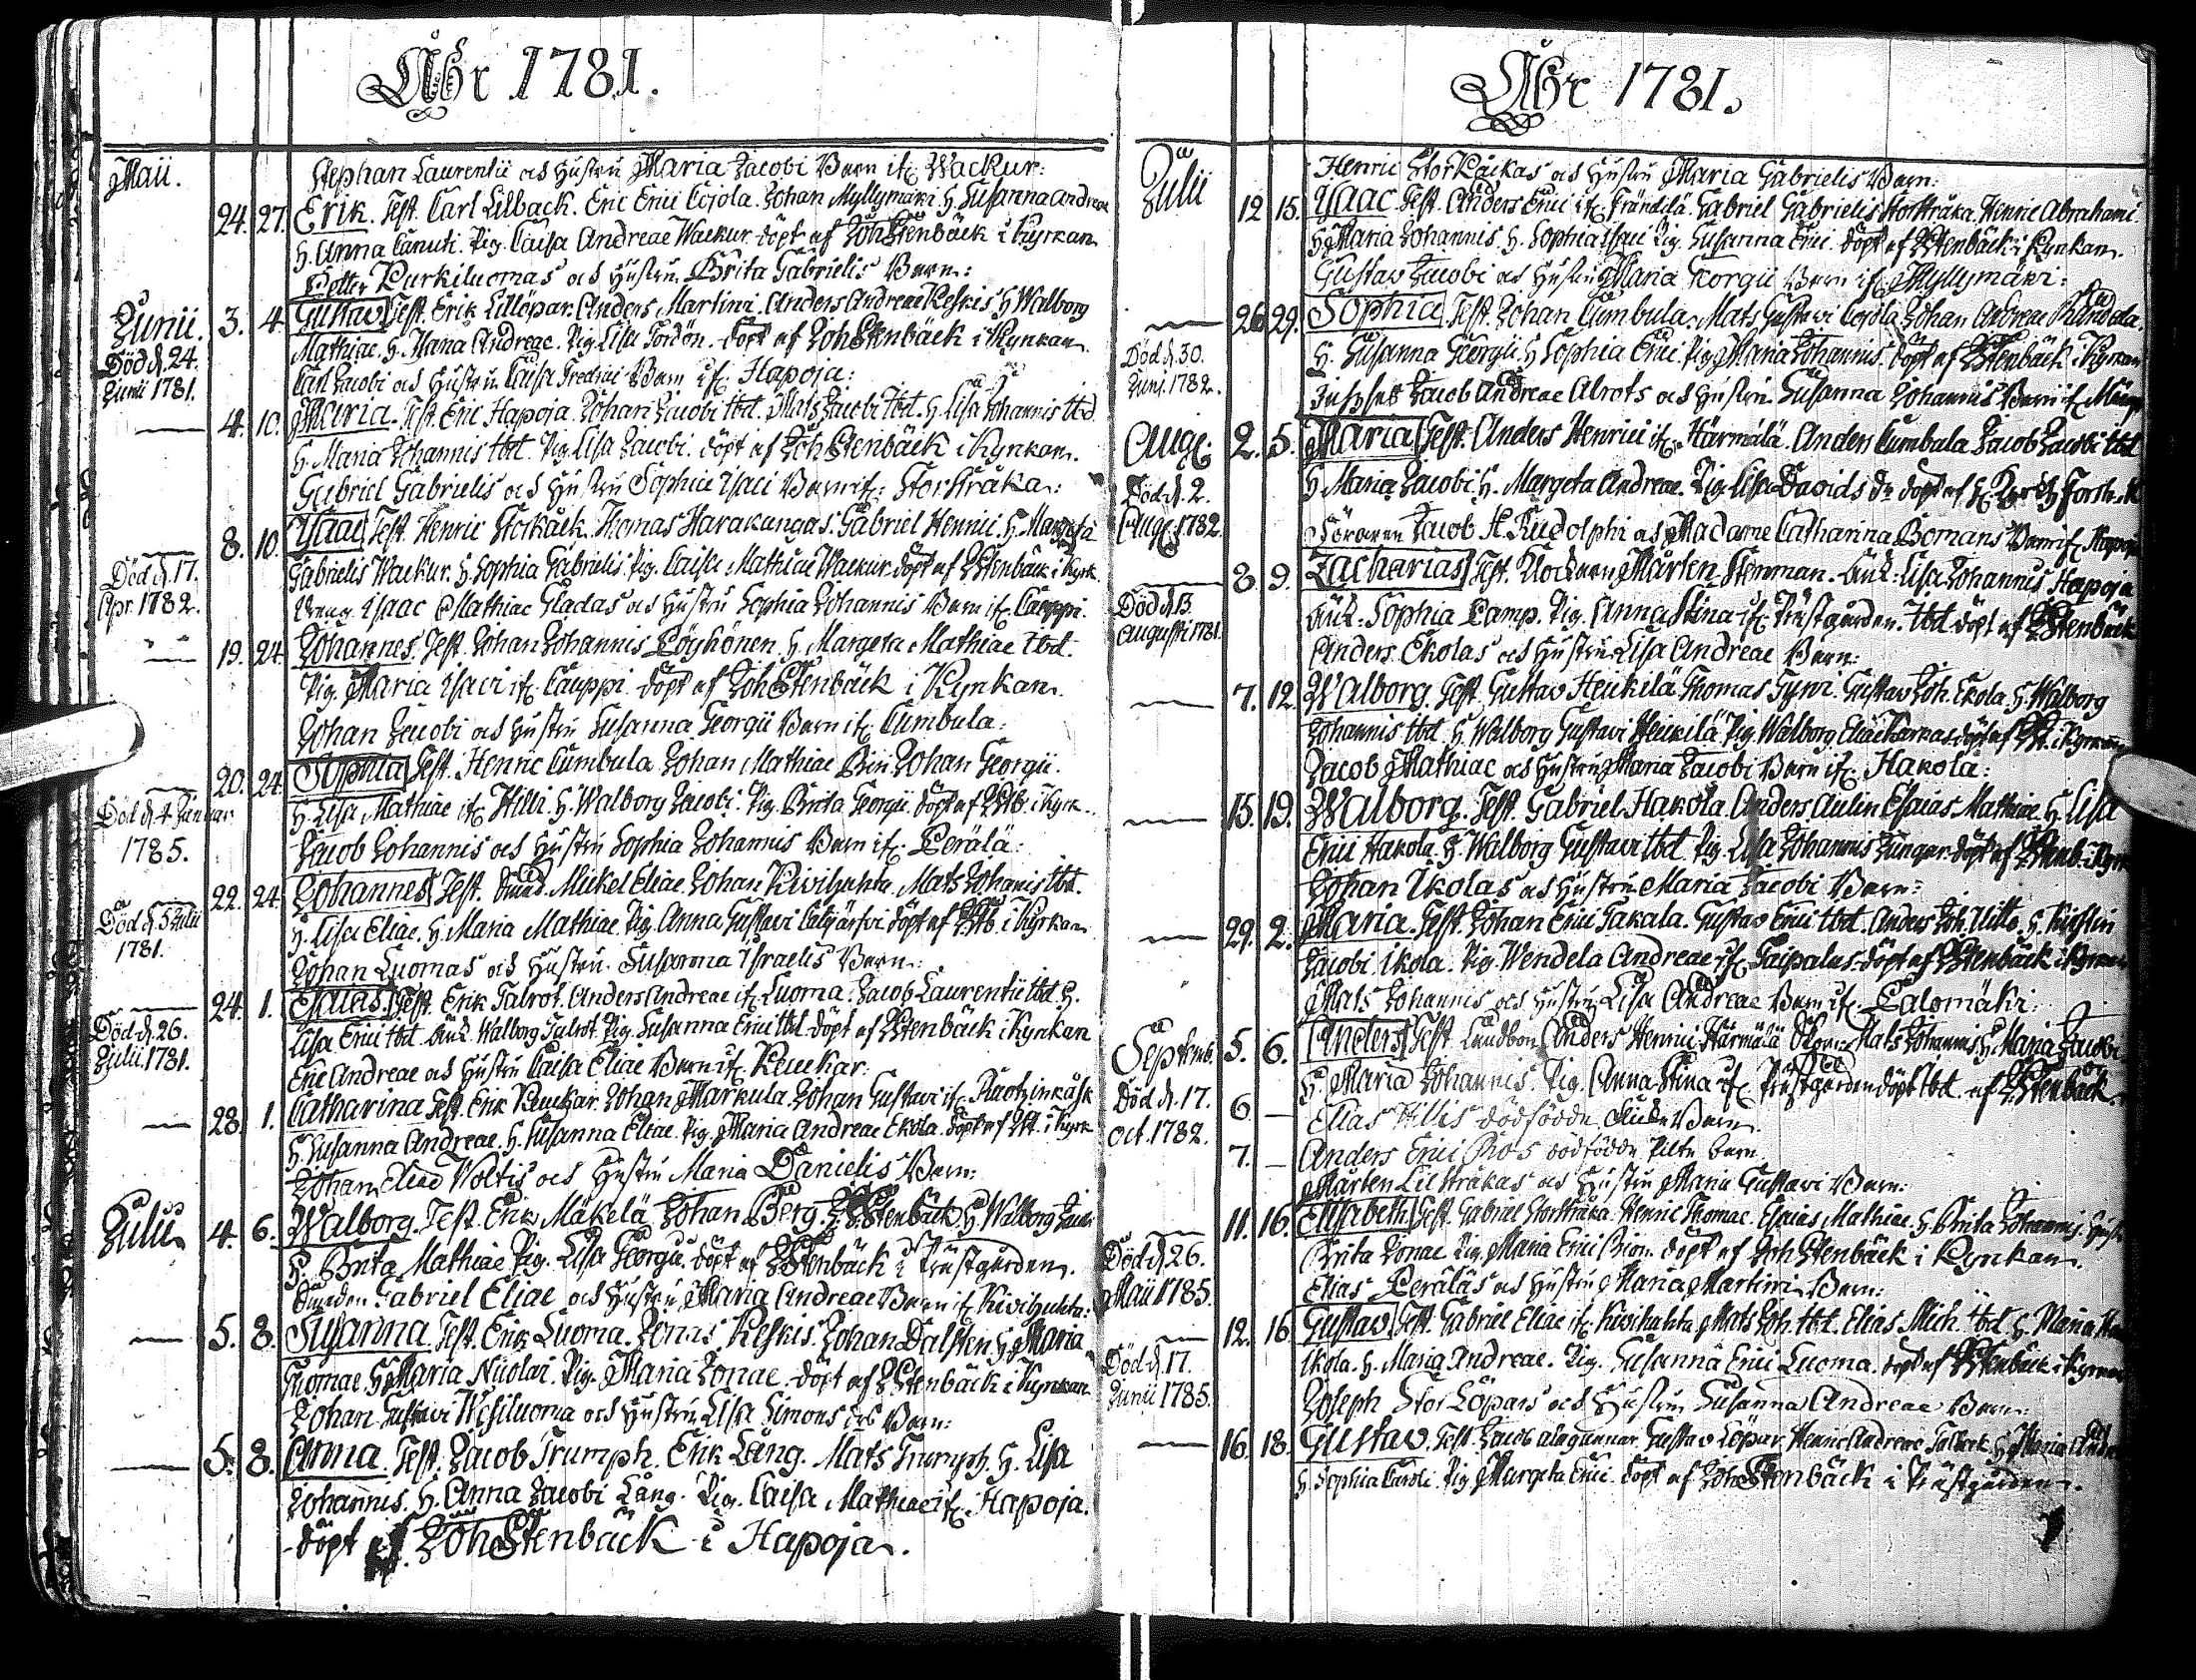 Åhr 1781.
Maii.
Stephan Laurentii och Hustru Maria Jacobi Barn if. Wackur:
24. 27. Erik. Test. Carl Lilback. Eric Erici Cojola. Johan Myllymäki H. Susanna Andreae
H. Anna Canuti. Pig. Caisa Andreae Wackur. döpt af Joh Stenbäck i Kyrkan
Petter Kurkiluomas och Hustru Brita Gabrielis Barn:
Junii. 3. 4. Gustav Test. Erik Lillöpar. Anders Martini. Anders Andreae Keskis H Walborg
Mathiae. H. Maria Andreae. Pig. Lisa Tordön. döpt af Joh Stenbäck i Kyrkan.
Död d. 24. Junii 1781.
Carl Jacobi och Hustru Caisa Fredrici Barn if. Hapoja:
4. 10. Maria. Test. Eric Hapoja. Johan Jacobi ibd. Mats Jacobi ibd. H. Lisa Johannis ibd
H. Maria Johannis ibd. Pig. Lisa Jacobi. döpt af Joh Stenbäck i Kyrkan.
Gabriel Gabrielis och Hustru Sophia Isaci Barn if: Storstråka:
8. 10. Ysaac Test. Henric Storkåck. Thomas Harakangas. Gabriel Henrici. H. Margeta
Gabrielis Wackur. H. Sophia Gabrielis. Pig. Caisa Mathiae Wackur. döpt af J Stenbäck i Kyrk.
Död d. 17. Apr. 1782.
Dräng Isaac Mathiae Gladas och Hustru Sophia Johannis Barn if. Cauppi.
19. 24. Johannes. Test. Johan Johannis Löyhönen. H. Margeta Mathiae ibd.
Pig. Maria Isaci if. Cauppi. döpt af Joh Stenbäck i Kyrkan.
Johan Jacobi och Hustru Susanna Georgii Barn if. Cumbula:
20. 24. Sophia Test. Henric Cumbula. Johan Mathiae Bin Johan Georgii.
H. Lisa Mathiae if. Hilli. H. Walborg Jacobi. Pig. Brita Georgii. döpt af J Stb. i Kyrk.
Död d. 4 Januar. 1785.
Jacob Johannis och Hustru Sophia Johannis Barn if. Perälä:
22. 24. Johannes Test. Mickel Eliae. Johan Kivihuhta. Mats Johannis ibd.
H. Lisa Eliae. H. Maria Mathiae. Pig. Anna Gustavi döpt af J Stb. i Kyrkan
Död d. 5 Julii 1781.
Johan Luomas och Hustru Susanna Israelis Barn:
24. 1. Esaias Test. Erik Talrot. Anders Andreae if. Luoma. Jacob Laurentii ibd. H.
Lisa Erici ibd. Walborg Talrot. Pig. Susanna Erici ibd. döpt af J Stenbäck i Kyrkan
Död d. 26. Julii 1781.
Eric Andreae och Hustru Caisa Eliae Barn if. Keuckar:
28. 1. Catharina Test. Erik Keuckar. Johan Markula. Johan Gustavi if.
H. Susanna Andreae. H. Susanna Eliae. Pig. Maria Andreae Ekola. döpt af J St. i Kyrk
Johan Eliae Woltis och Hustru Maria Danielis Barn:
Julii. 4. 6. Walborg. Test. Erik Mäkelä Johan Berg. J. Stenbäck. H Walborg
H. Brita Mathiae Pig. Lisa Georgii. döpt af J Stenbäck i Prästgården.
Gabriel Eliae och Hustru Maria Andreae Barn if Kivihuhta:
5. 8. Susanna. Test. Erik Luoma. Jonas Keskis. Johan Dalsten. H. Maria
Thomae. H. Maria Nicolai. Pig. Maria Jonae. döpt af J Stenbäck i Kyrkan
Johan Gustavi Wesiluoma och Hustru Lisa Simons Barn:
5. 8. Anna. Test. Jacob Trumph. Erik Lång. Mats Trumph. H. Lisa
Johannis. H. Anna Jacobi Lång. Pig. Caisa Mathiae if. Hapoja.
döpt af Joh Stenbäck i Hapoja.
Åhr 1781.
Julii
Henric Storkåckas och Hustru Maria Gabrielis Barn:
12 15. Ysaac. Test. Anders Erici if. Frändilä. Gabriel Gabrielis Storstråka. Henric Abrahami
H. Maria Johannis. H. Sophia Isaci Pig. Susanna Erici. döpt af J Stenbäck i Kyrkan.
Gustav Jacobi och Hustru Maria Georgii Barn if. Myllymäki:
26 29. Sophia. Test. Johan Cumbula. Mats Gustavi Cojola. Johan Andreae
H. Susanna Georgii. H. Sophia Erici. Pig. Maria Johannis. döpt af J Stenbäck i Kyrkan
Död d. 30. Juni. 1782.
Jacob Andreae Alrots och Hustru Susanna Johannis Barn if.
Aug: 2. 5. Maria Test. Anders Henrici if. Härmälä. Anders Cumbula. Jacob Jacobi ibd
H. Maria Jacobi. H. Margeta Andreae. Pig. Lisa Davids dr. döpt af
Död d. 2. Aug. 1782.
Jacob H. Rudolphi och Madame Catharina Bomans Barn if. Hapoja
8. 9. Zacharias Test. Klockaren Mårten Stenman. Lisa Johannis Hapoja
Sophia Camp. Pig. Anna Stina if. Prästgården. ibd. döpt af J Stenbäck
Död d. 13. Augusti 1781.
Anders Ekolas och Hustru Lisa Andreae Barn:
7. 12. Walborg. Test. Gustav Heickilä Thomas Gustav Joh. Ekola. H. Walborg
Johannis ibd. H. Walborg Gustavi Heickilä Pig. Walborg Eliae döpt af J St. i Kyrkan
Jacob Mathiae och Hustru Maria Jacobi Barn if. Hakola:
15. 19. Walborg. Test. Gabriel Hakola. Anders Aulin Esaias Mathiae. H. Lisa
Erici Hakola. H. Walborg Gustavi ibd. Pig. Lisa Johannis döpt af J Stenb. i Kyrk
Johan Ikolas och Hustru Maria Jacobi Barn:
29. 2. Maria. Test. Johan Erici Takala. Gustav Erici ibd. Anders Joh. H. Kirstin
Jacobi Ikola. Pig. Wendela Andreae if. Taipalus. döpt af J Stenbäck i Kyrkan
Mats Johannis och Hustru Lisa Andreae Barn if. Palomäki:
Septemb. 5. 6. Test. Anders Henrici Härmälä Mats Johannis H. Maria Jacobi
H. Maria Johannis. Pig. Anna Stina if. Prästgården döpt ibd. af J Stenbäck.
Död d. 17. Oct. 1782.
6 — Elias Hillis dödfödde Barn.
7. — Anders Erici dödfödde Pilte barn.
Mårten Lillstråkas och Hustru Maria Gustavi Barn:
11. 16. Elisabeth Test. Gabriel Storstråka. Henric Thomae. Esaias Mathiae. H. Brita Johannis.
Brita Jonae. Pig. Maria Erici döpt af Joh Stenbäck i Kyrkan.
Död d. 26. Maii 1785.
Elias Peräläs och Hustru Maria Martini Barn:
12. 16 Gustav Test. Gabriel Eliae if. Kivihuhta Mats Joh. ibd. Elias Mich. ibd. H. Maria
Ikola. H. Maria Andreae. Pig. Susanna Erici Luoma. döpt af J Stenbäck i Kyrkan
Död d. 17. Junii 1785.
Joseph Stor Löpars och Hustru Susanna Andreae Barn:
16. 18. Gustav. Test. Jacob Gustav Löpar. Henric Andreae H Maria
H. Sophia Caroli. Pig Margeta Erici. döpt af Joh Stenbäck i Prästgården.